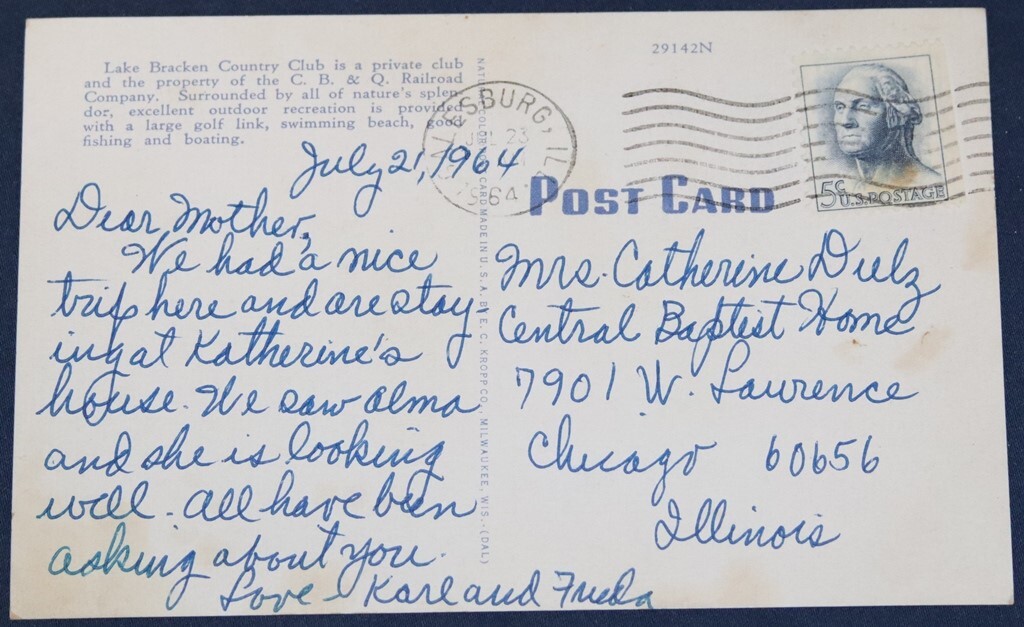 29142N
Lake Bracken Country Club is a private club
and the property of the C. B. & Q. Railroad
Company. Surrounded by all of nature's splen-
dor, excellent outdoor recreation is provided
with a large golf link, swimming beach, good
fishing and boating.
GALESBURG, ILL
JUL 23
1964
5¢
U.S. POSTAGE
POST CARD
July 21, 1964
Dear Mother,
We had a nice
trip here and are stay
ing at Katherine's
house. We saw Alma
and she is looking
well. All have been
asking about you.
Love - Karl and Frieda
Mrs. Catherine
Central Baptist Home
7901 W. Lawrence
Chicago 60656
Illinois
CARD MADE IN U. S. A. BY E. C. KROPP CO., MILWAUKEE, WIS.-(DAL)